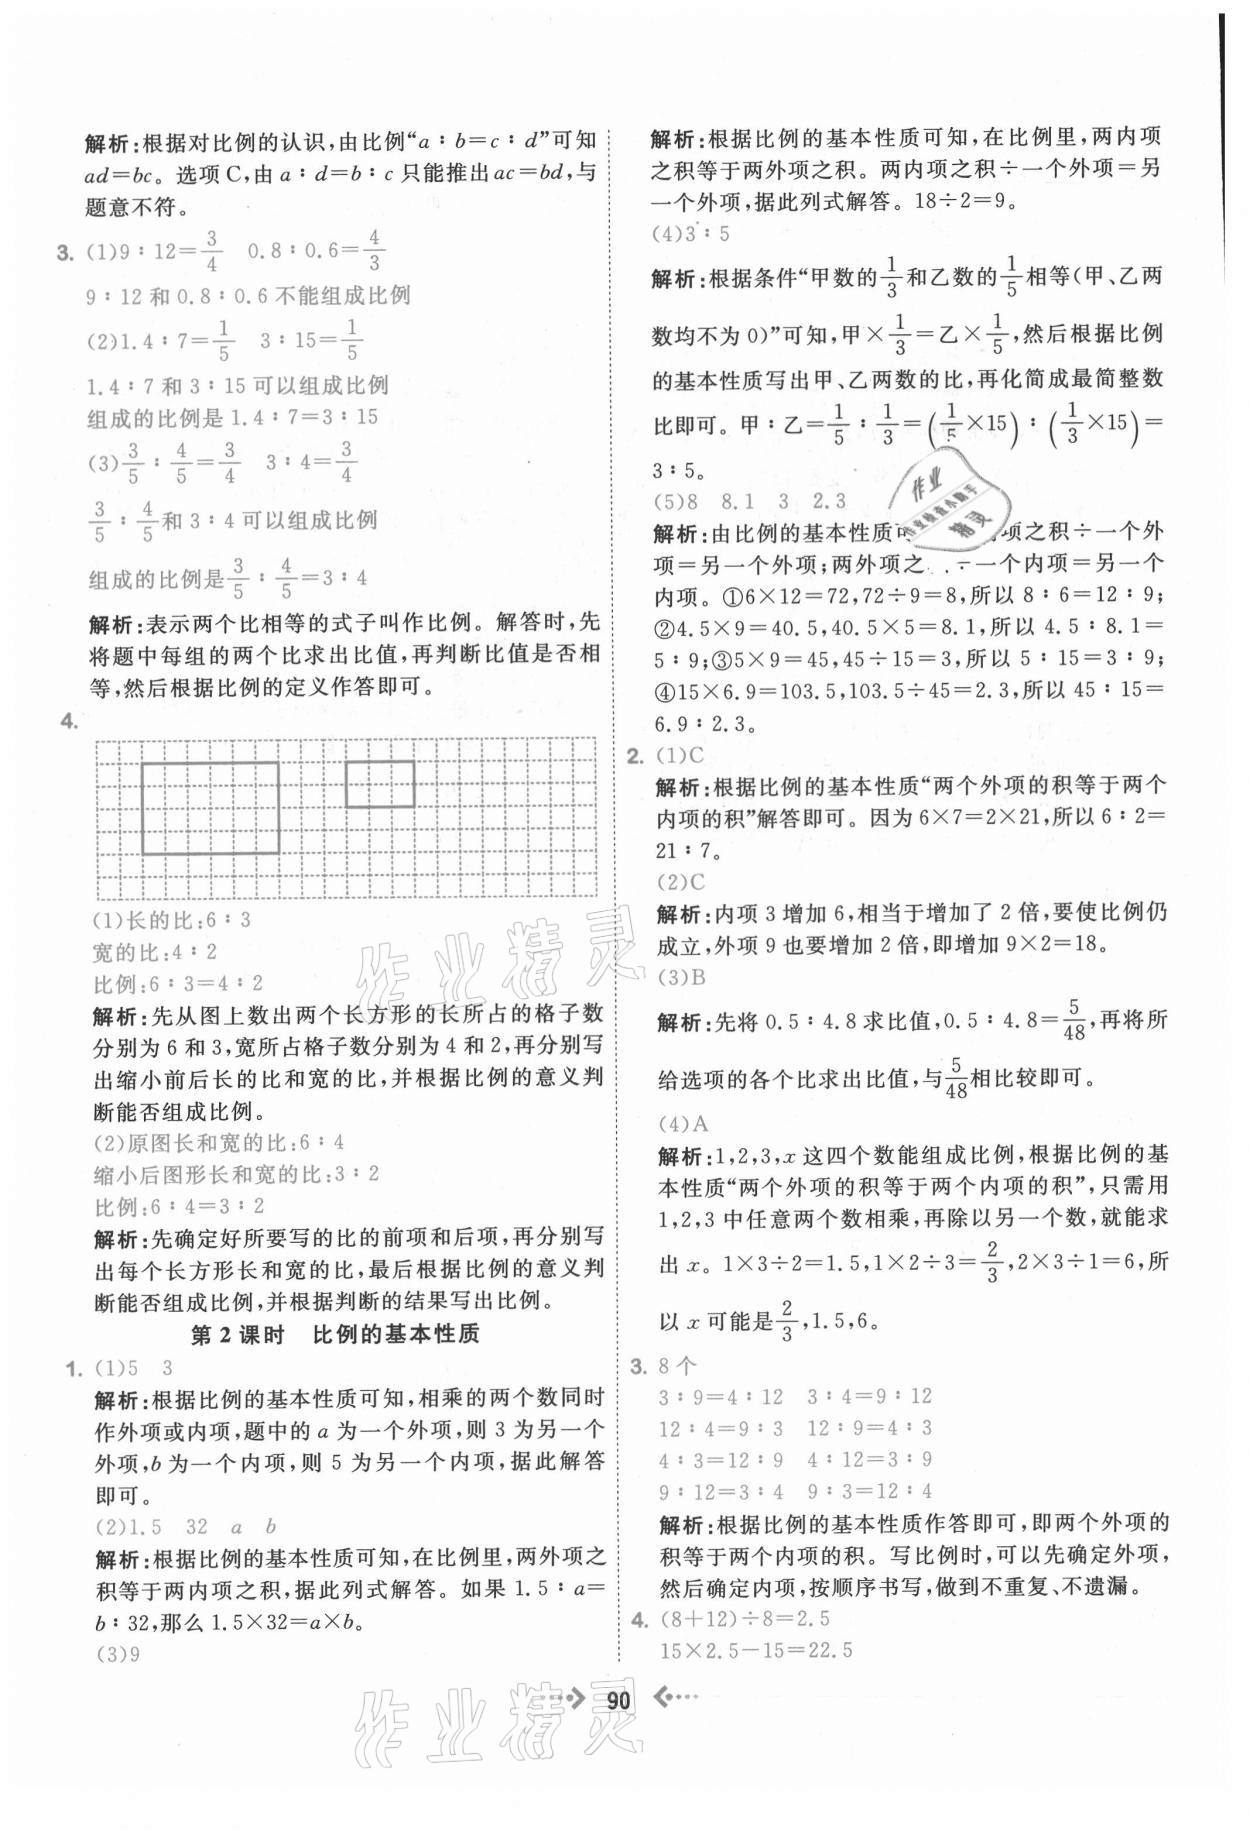 解析:根据对比例的认识,由比例“a∶b=c∶d”可知
ad=bc。选项C,由a∶d=b∶c只能推出ac=bd,与
题意不符。
3. (1)9∶12=3/4 0.8∶0.6=4/3
9∶12和0.8∶0.6不能组成比例
(2)1.4∶7=1/5 3∶15=1/5
1.4∶7和3∶15可以组成比例
组成的比例是1.4∶7=3∶15
(3)3/5∶4/5=3/4 3∶4=3/4
3/5∶4/5和3∶4可以组成比例
组成的比例是3/5∶4/5=3∶4
解析:表示两个比相等的式子叫作比例。解答时,先
将题中每组的两个比求出比值,再判断比值是否相
等,然后根据比例的定义作答即可。
4.
(1)长的比:6∶3
宽的比:4∶2
比例:6∶3=4∶2
解析:先从图上数出两个长方形的长所占的格子数
分别为6和3,宽所占格子数分别为4和2,再分别写
出缩小前后长的比和宽的比,并根据比例的意义判
断能否组成比例。
(2)原图长和宽的比:6∶4
缩小后图形长和宽的比:3∶2
比例:6∶4=3∶2
解析:先确定好所要写的比的前项和后项,再分别写
出每个长方形长和宽的比,最后根据比例的意义判
断能否组成比例,并根据判断的结果写出比例。
第2课时 比例的基本性质
1. (1)5 3
解析:根据比例的基本性质可知,相乘的两个数同时
作外项或内项,题中的a为一个外项,则3为另一个
外项,b为一个内项,则5为另一个内项,据此解答
即可。
(2)1.5 32 a b
解析:根据比例的基本性质可知,在比例里,两外项之
积等于两内项之积,据此列式解答。如果1.5∶a=
b∶32,那么1.5×32=a×b。
(3)9
解析:根据比例的基本性质可知,在比例里,两内项
之积等于两外项之积。两内项之积÷一个外项=另
一个外项,据此列式解答。18÷2=9。
(4)3∶5
解析:根据条件“甲数的1/3和乙数的1/5相等(甲、乙两
数均不为0)”可知,甲×1/3=乙×1/5,然后根据比例
的基本性质写出甲、乙两数的比,再化简成最简整数
比即可。甲∶乙=1/5∶1/3=(1/5×15)∶(1/3×15)=
3∶5。
(5)8 8.1 3 2.3
解析:由比例的基本性质可 项之积÷一个外
项=另一个外项;两外项之 ÷一个内项=另一个
内项。①6×12=72,72÷9=8,所以8∶6=12∶9;
②4.5×9=40.5,40.5×5=8.1,所以4.5∶8.1=
5∶9;③5×9=45,45÷15=3,所以5∶15=3∶9;
④15×6.9=103.5,103.5÷45=2.3,所以45∶15=
6.9∶2.3。
2. (1)C
解析:根据比例的基本性质“两个外项的积等于两个
内项的积”解答即可。因为6×7=2×21,所以6∶2=
21∶7。
(2)C
解析:内项3增加6,相当于增加了2倍,要使比例仍
成立,外项9也要增加2倍,即增加9×2=18。
(3)B
解析:先将0.5∶4.8求比值,0.5∶4.8=5/48,再将所
给选项的各个比求出比值,与5/48相比较即可。
(4)A
解析:1,2,3,x这四个数能组成比例,根据比例的基
本性质“两个外项的积等于两个内项的积”,只需用
1,2,3中任意两个数相乘,再除以另一个数,就能求
出x。1×3÷2=1.5,1×2÷3=2/3,2×3÷1=6,所
以x可能是2/3,1.5,6。
3. 8个
3∶9=4∶12 3∶4=9∶12
12∶4=9∶3 12∶9=4∶3
4∶3=12∶9 4∶12=3∶9
9∶12=3∶4 9∶3=12∶4
解析:根据比例的基本性质作答即可,即两个外项的
积等于两个内项的积。写比例时,可以先确定外项,
然后确定内项,按顺序书写,做到不重复、不遗漏。
4. (8+12)÷8=2.5
15×2.5-15=22.5
90
作业精灵
作业精灵
作业
作业检查小助手
精灵